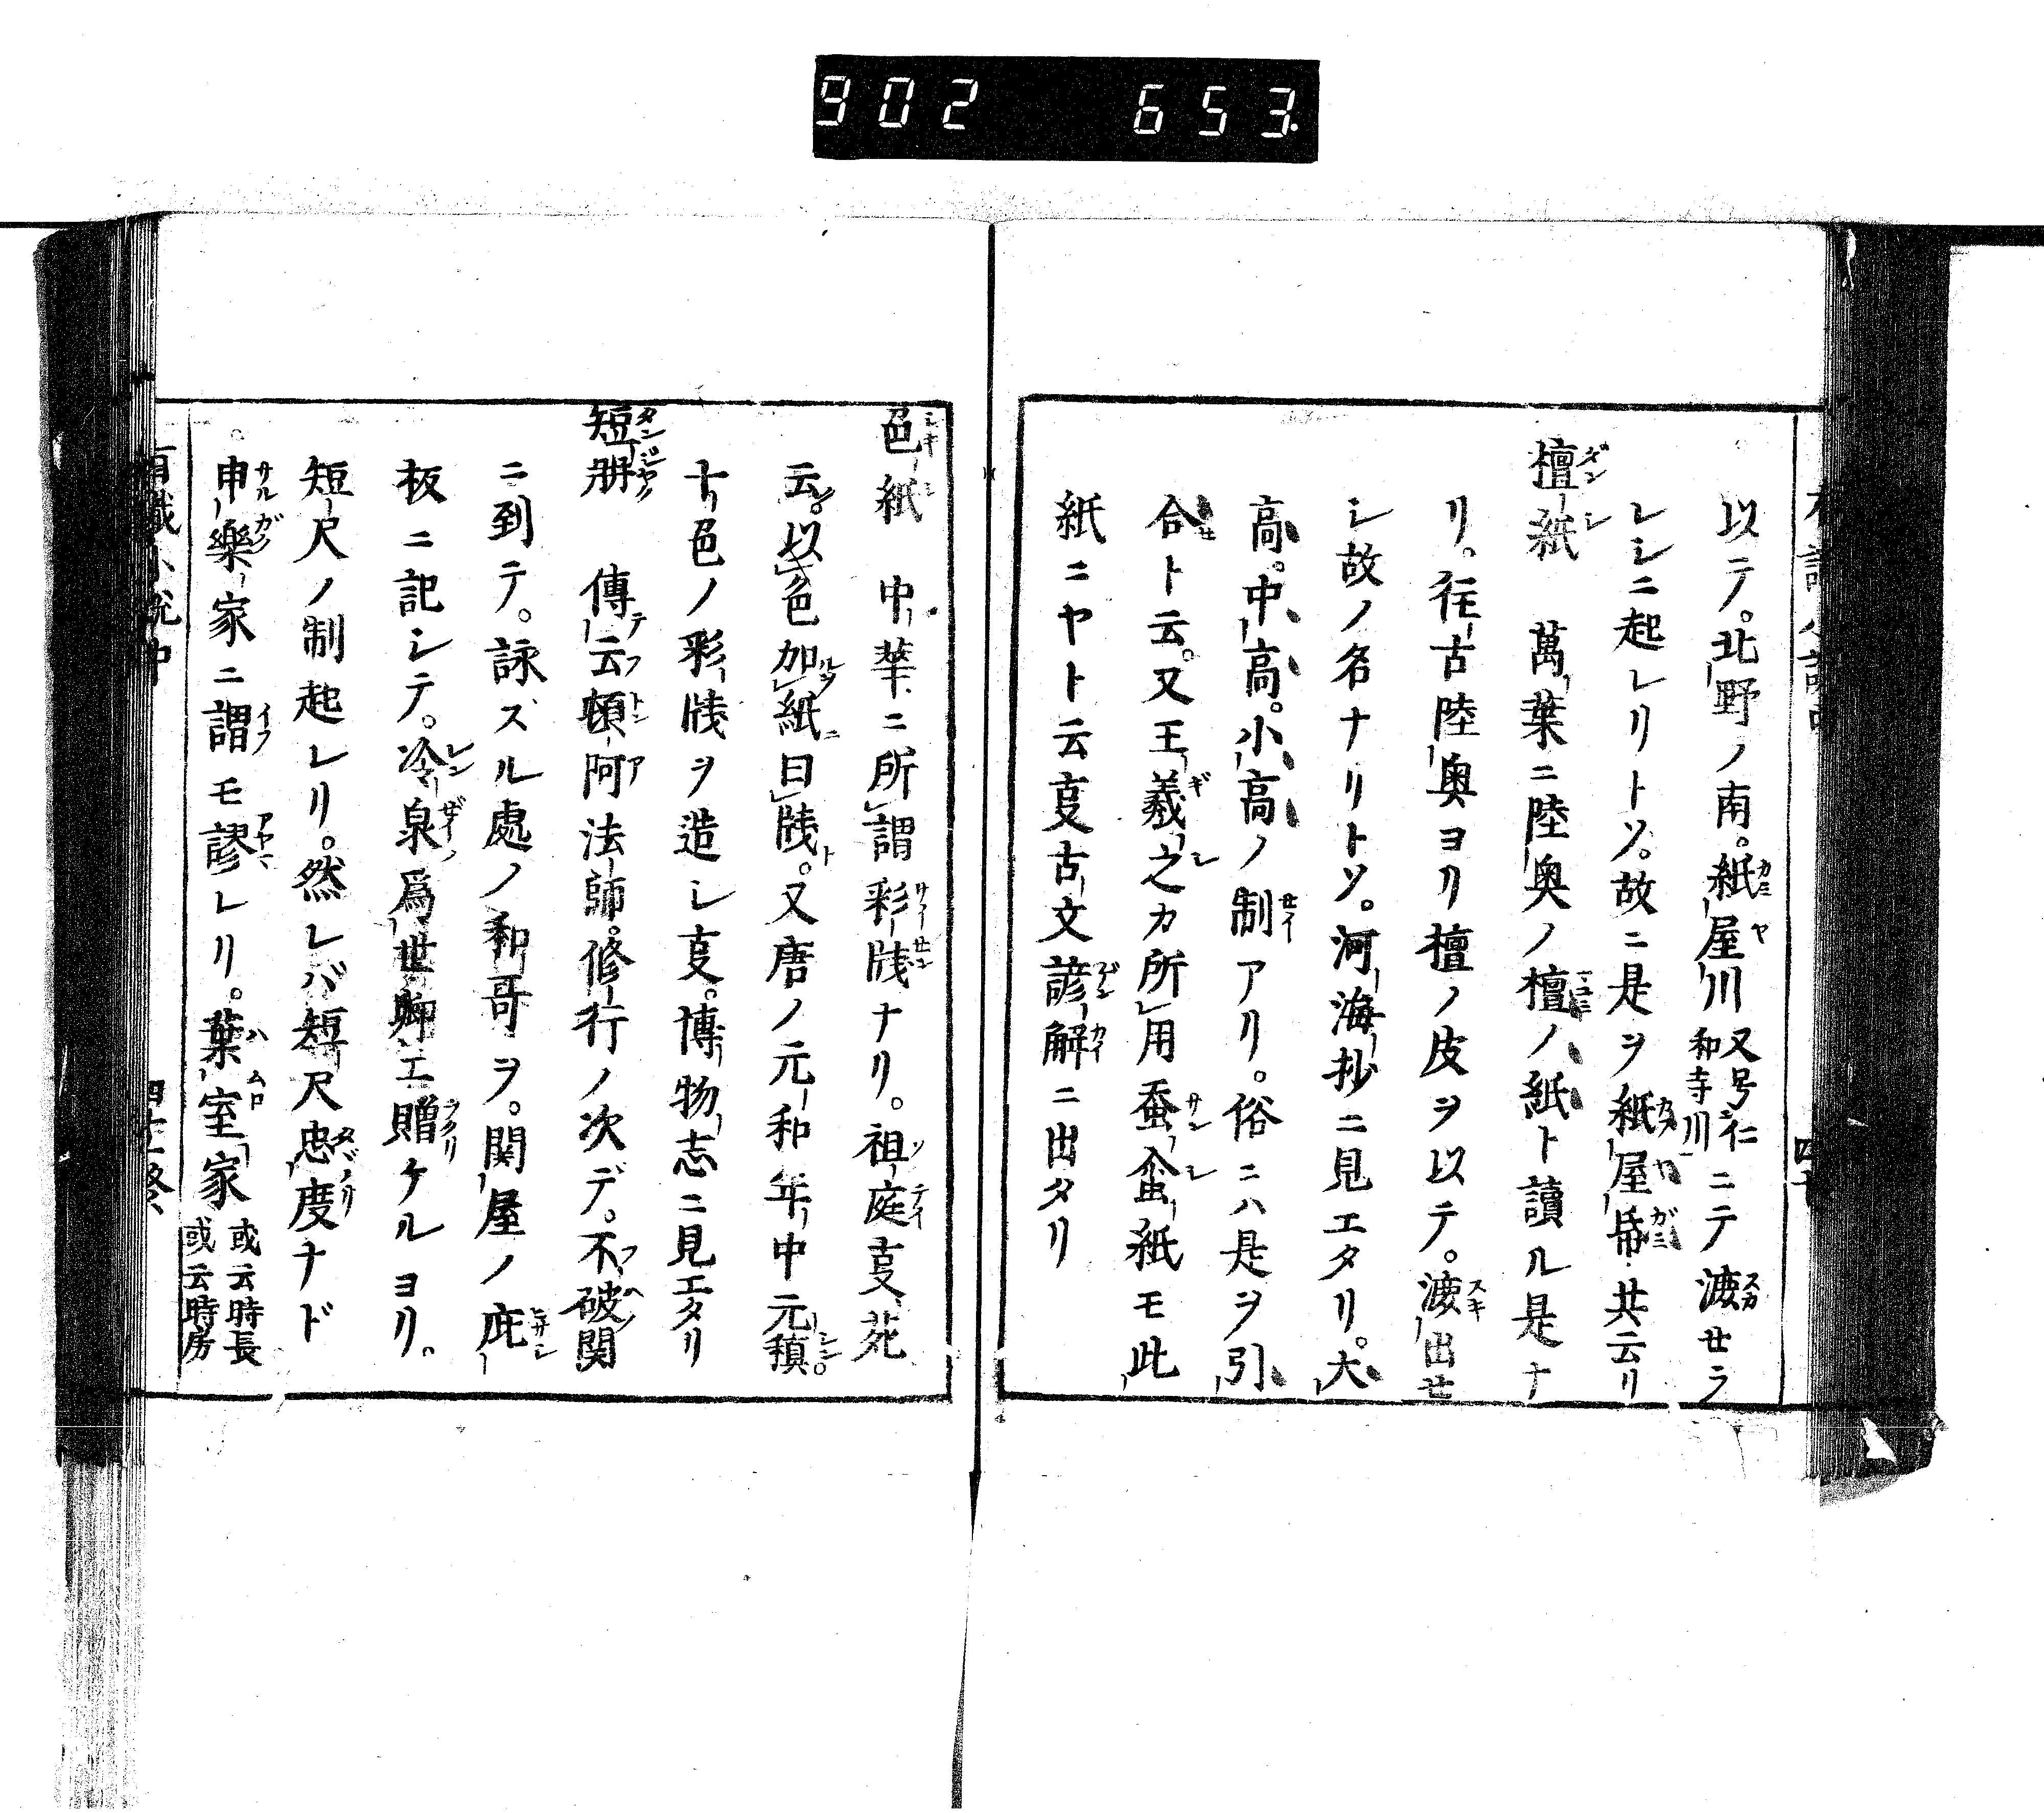 902 653
以テ。北野ノ南。紙屋川又号仁和寺川ニテ漉セラ
レシニ起レリトソ。故ニ是ヲ紙屋帋共云リ
檀紙 萬葉ニ陸奥ノ檀ノ紙ト讀ル是ナ
リ。徃古陸奥ヨリ檀ノ皮ヲ以テ。漉出せ
シ故ノ名ナリトソ。河海抄ニ見エタリ。大
高。中高。小高ノ制アリ。俗ニハ是ヲ引
合ト云。又王羲之カ所用蚕蚕紙モ此
紙ニヤト云叓古文諺解ニ出タリ
色紙 中華ニ所謂彩牋ナリ。祖庭叓苑
云。以色加紙曰牋。又唐ノ元和年中元稹
十色ノ彩牋ヲ造レ叓。博物志ニ見エタリ
短册 傳云頓阿法師。修行ノ次デ。不破関
ニ到テ。詠ズル處ノ和哥ヲ。関屋ノ庇
板ニ記シテ。冷泉為世卿エ贈ケルヨリ。
短尺ノ制起レリ。然レバ短尺忠度ナド
申樂家ニ謂モ謬レリ。葉室家或云時長或云時房
有職小説中 四十一終